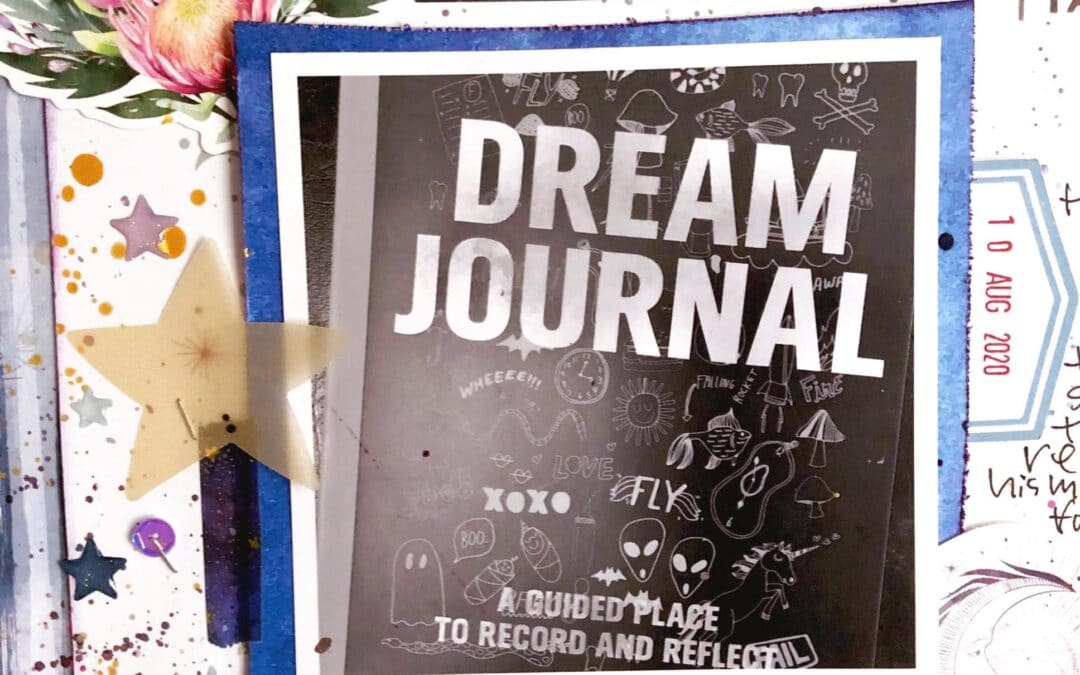 FLY
BOO
DREAM
JOURNAL
10 AUG 2020
WHEEEE!!!
FALLING
ROCKET
FIRE
LOVE
XOXO
FLY
BOO.
A GUIDED PLACE
TO RECORD AND REFLECT